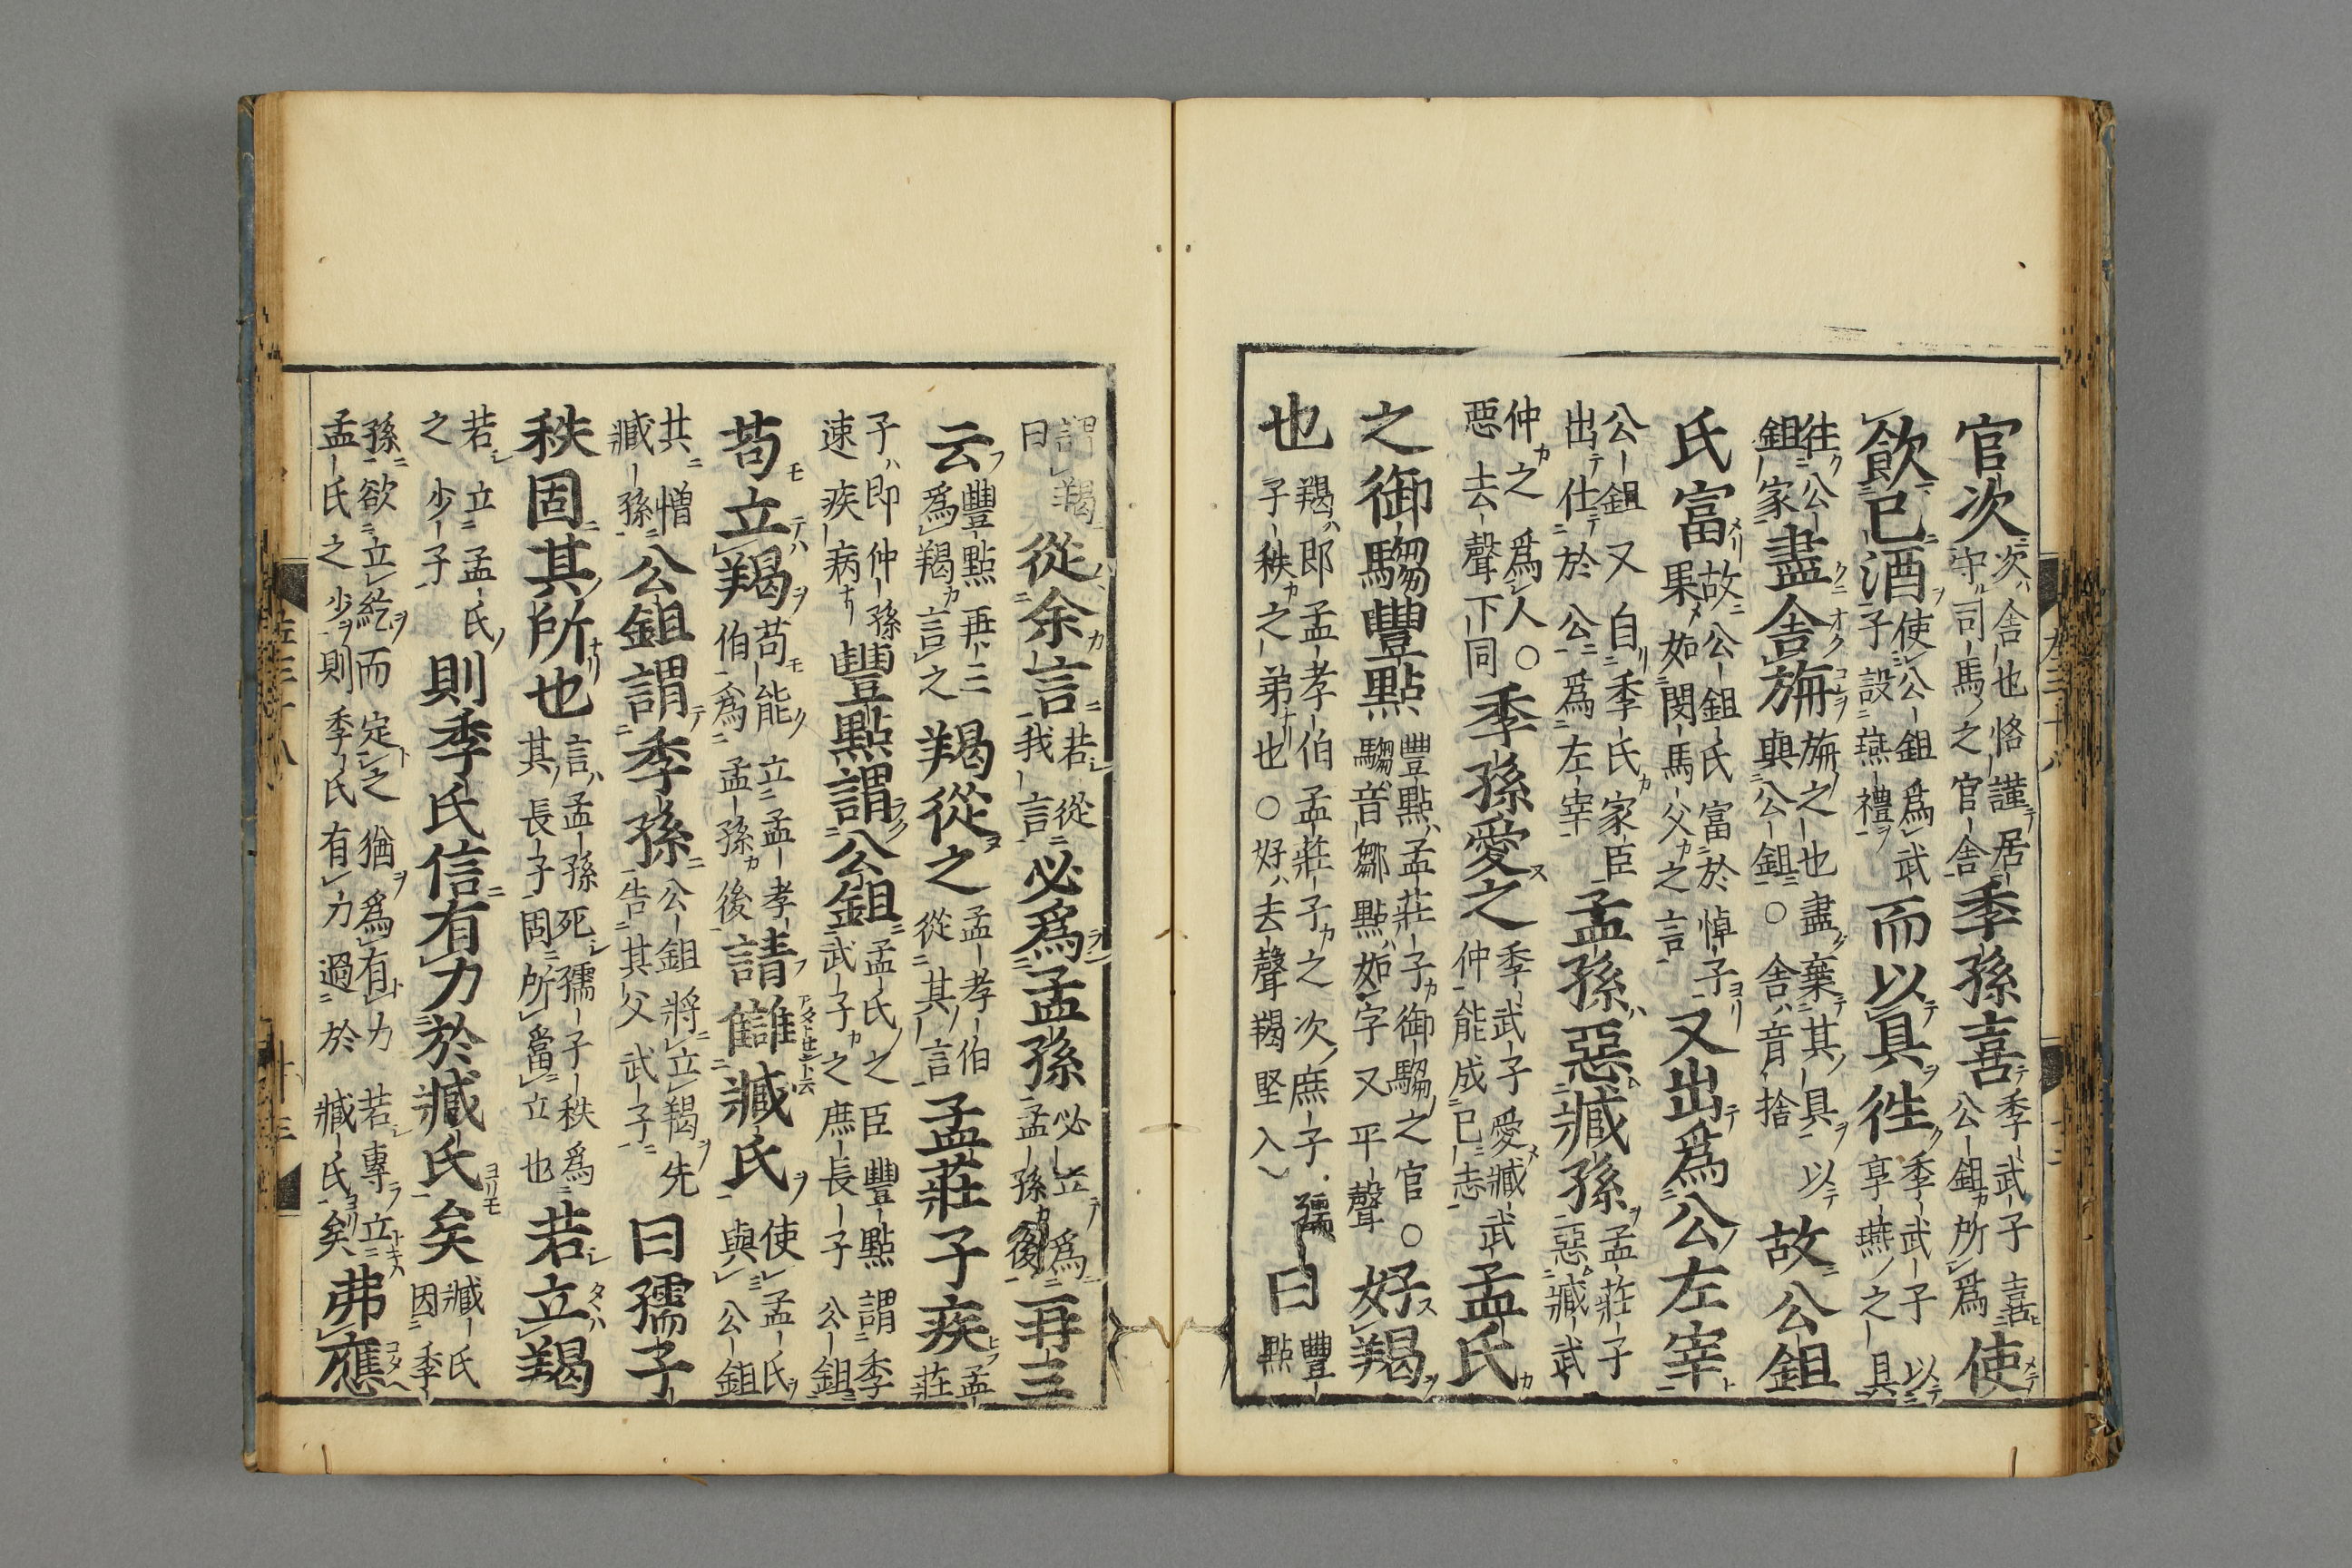 官次次舎也恪謹居守司馬之官舎季孫喜季武子喜公鉏所爲使
飮已酒使公鉏爲武子設燕禮而以具徃季武子以享燕之具
徃公鉏家盡舎旃旃之也盡棄其具以與公鉏○舎音捨故公鉏
氏富故公鉏氏富於悼子果如閔馬父之言又出爲公左宰
公鉏又自季氏家臣出仕於公爲左宰孟孫惡臧孫孟莊子惡臧武
仲之爲人○惡去聲下同季孫愛之季武子愛臧武仲能成已志孟氏
之御騶豐點豐點孟莊子御騶之官○騶音鄒點如字又平聲好羯
也羯即孟孝伯孟莊子之次庶子孺子秩之弟也○好去聲羯堅入曰豐點
謂羯曰從余言若從我言必爲孟孫必立爲孟孫後再三
云豐點再三爲羯言之羯從之孟孝伯從其言孟莊子疾孟莊
子即仲孫速疾病豐點謂公鉏孟氏之臣豐點謂季武子之庶長子公鉏
苟立羯苟能立孟孝伯爲孟孫後請讎臧氏使孟氏與公鉏
共憎臧孫公鉏謂季孫公鉏將立羯先告其父武子曰孺子
秩固其所也言孟孫死孺子秩爲其長子固所當立也若立羯
若立孟氏之少子則季氏信有力於臧氏矣臧氏因季
孫欲立紇而定之猶爲有力若專立孟氏之少則季氏有力過於臧氏矣弗應